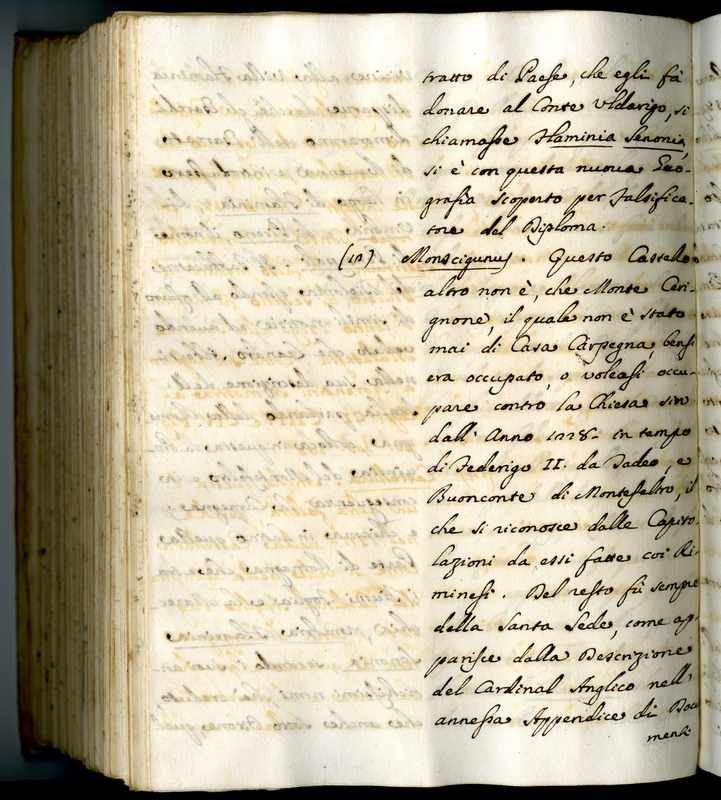 tratto di Paese, che egli fà
donare al Conte Uldarigo, si
chiamasse Flaminia Senonia,
si è con questa nuova Geo-
grafia scoperto per Falsifica-
tore del Diploma.
(12) Monscigunus. Questo Castello
altro non è, che Monte Ceri-
gnone, il quale non è stato
mai di Casa Carpegna, bensi
era occupato, o voleasi occu-
pare contro la Chiesa sin
dall' Anno 1228. in tempo
di Federigo II. da Tadeo, e
Buonconte di Montefeltro, il
che si riconosce dalle Capito
lazioni da essi fatte coi Ri-
minesi. Del resto fù sempre
della Santa Sede, come ap-
parisce dalla Descrizione
del Cardinal Anglico nell'
annessa Appendice di Docu
menti